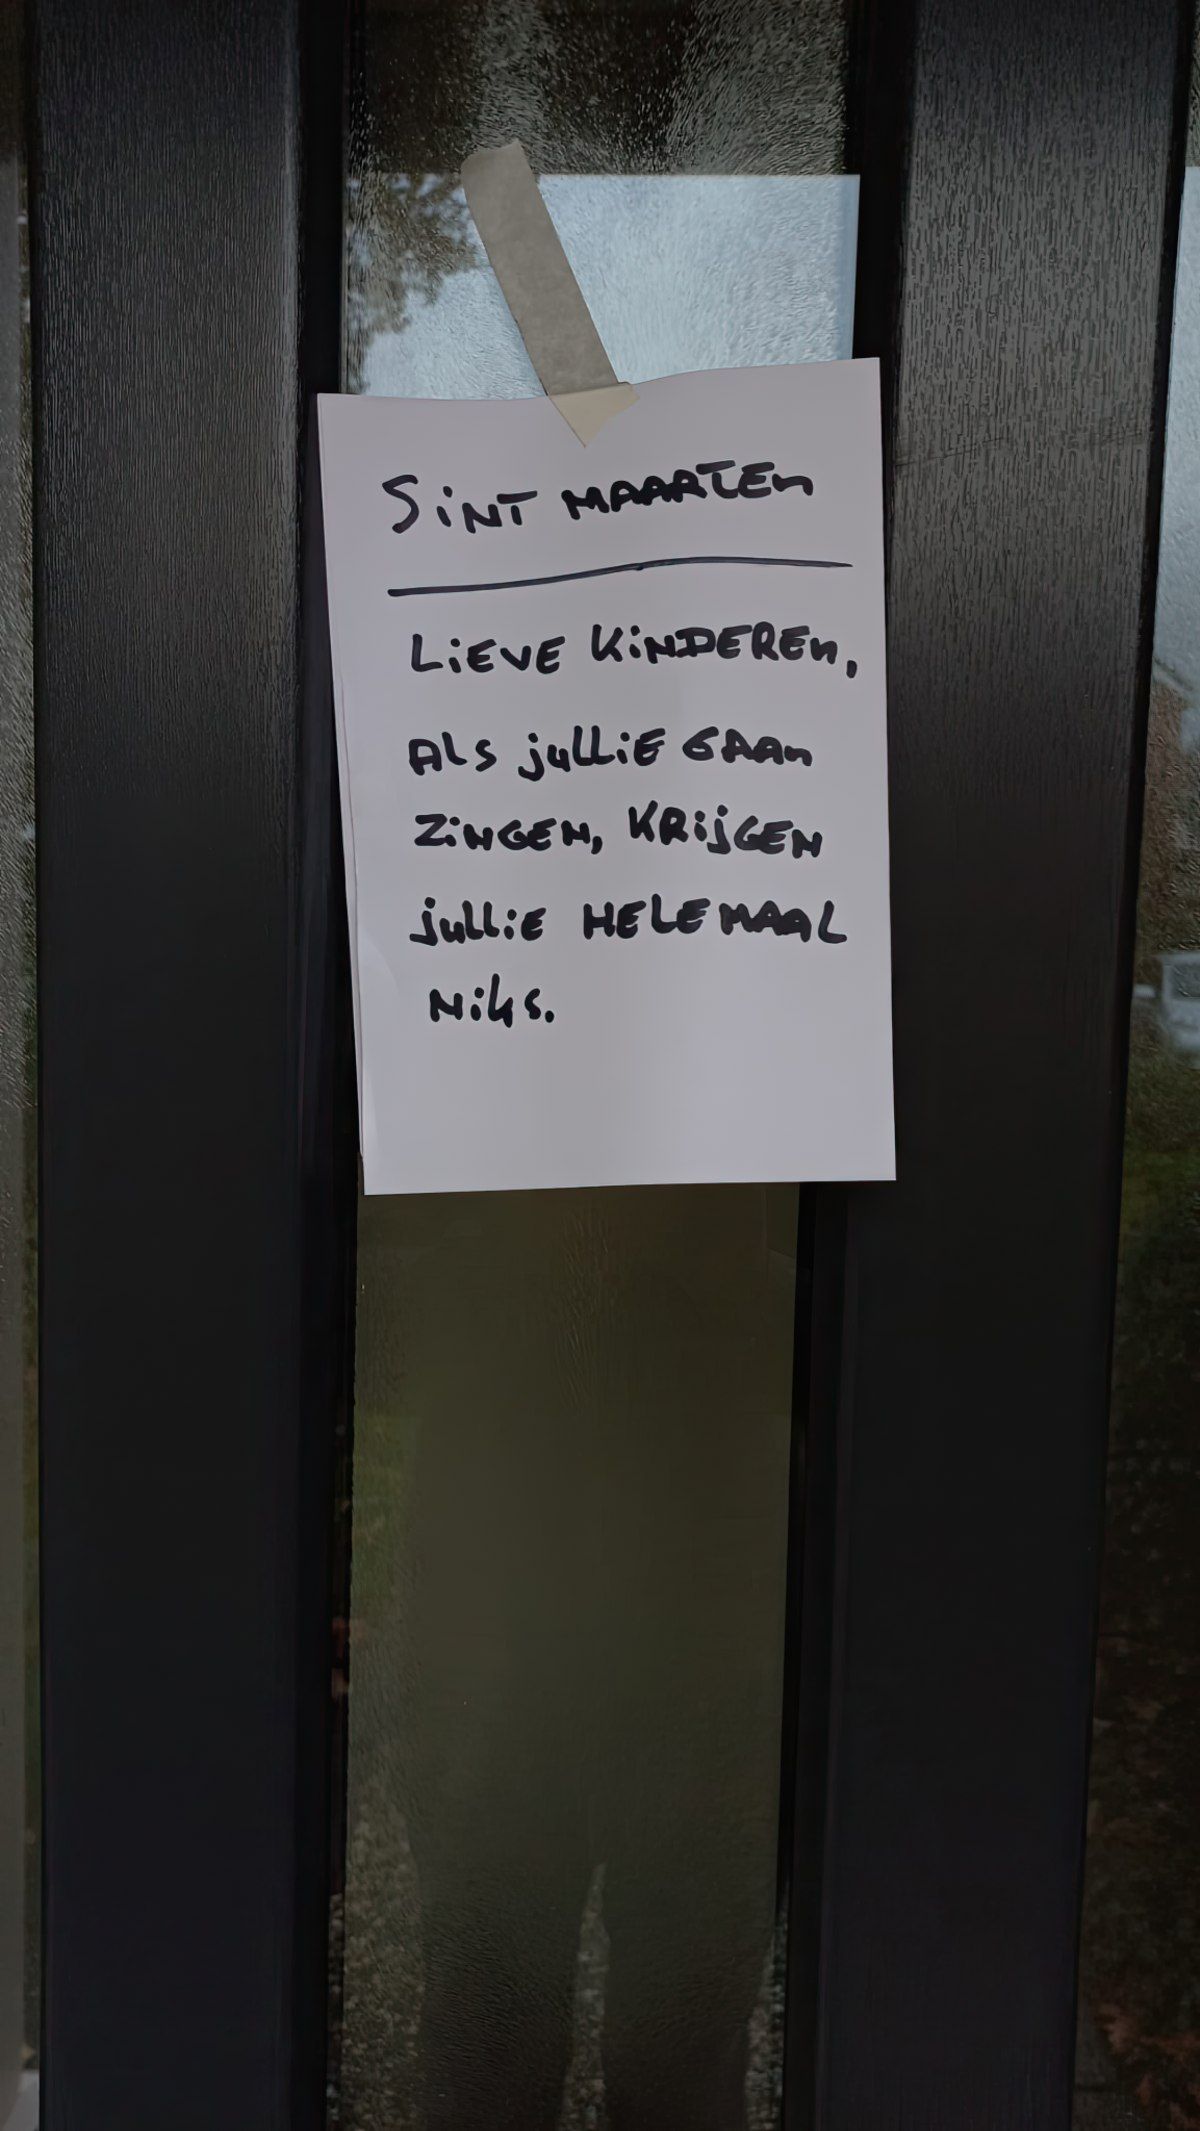 SiNT MAARTEN
LiEVE KiNDEREN,
ALS jULLiE GAAN
ZiNGEN, KRijGEN
jULLiE HELEMAAL
NiKS.